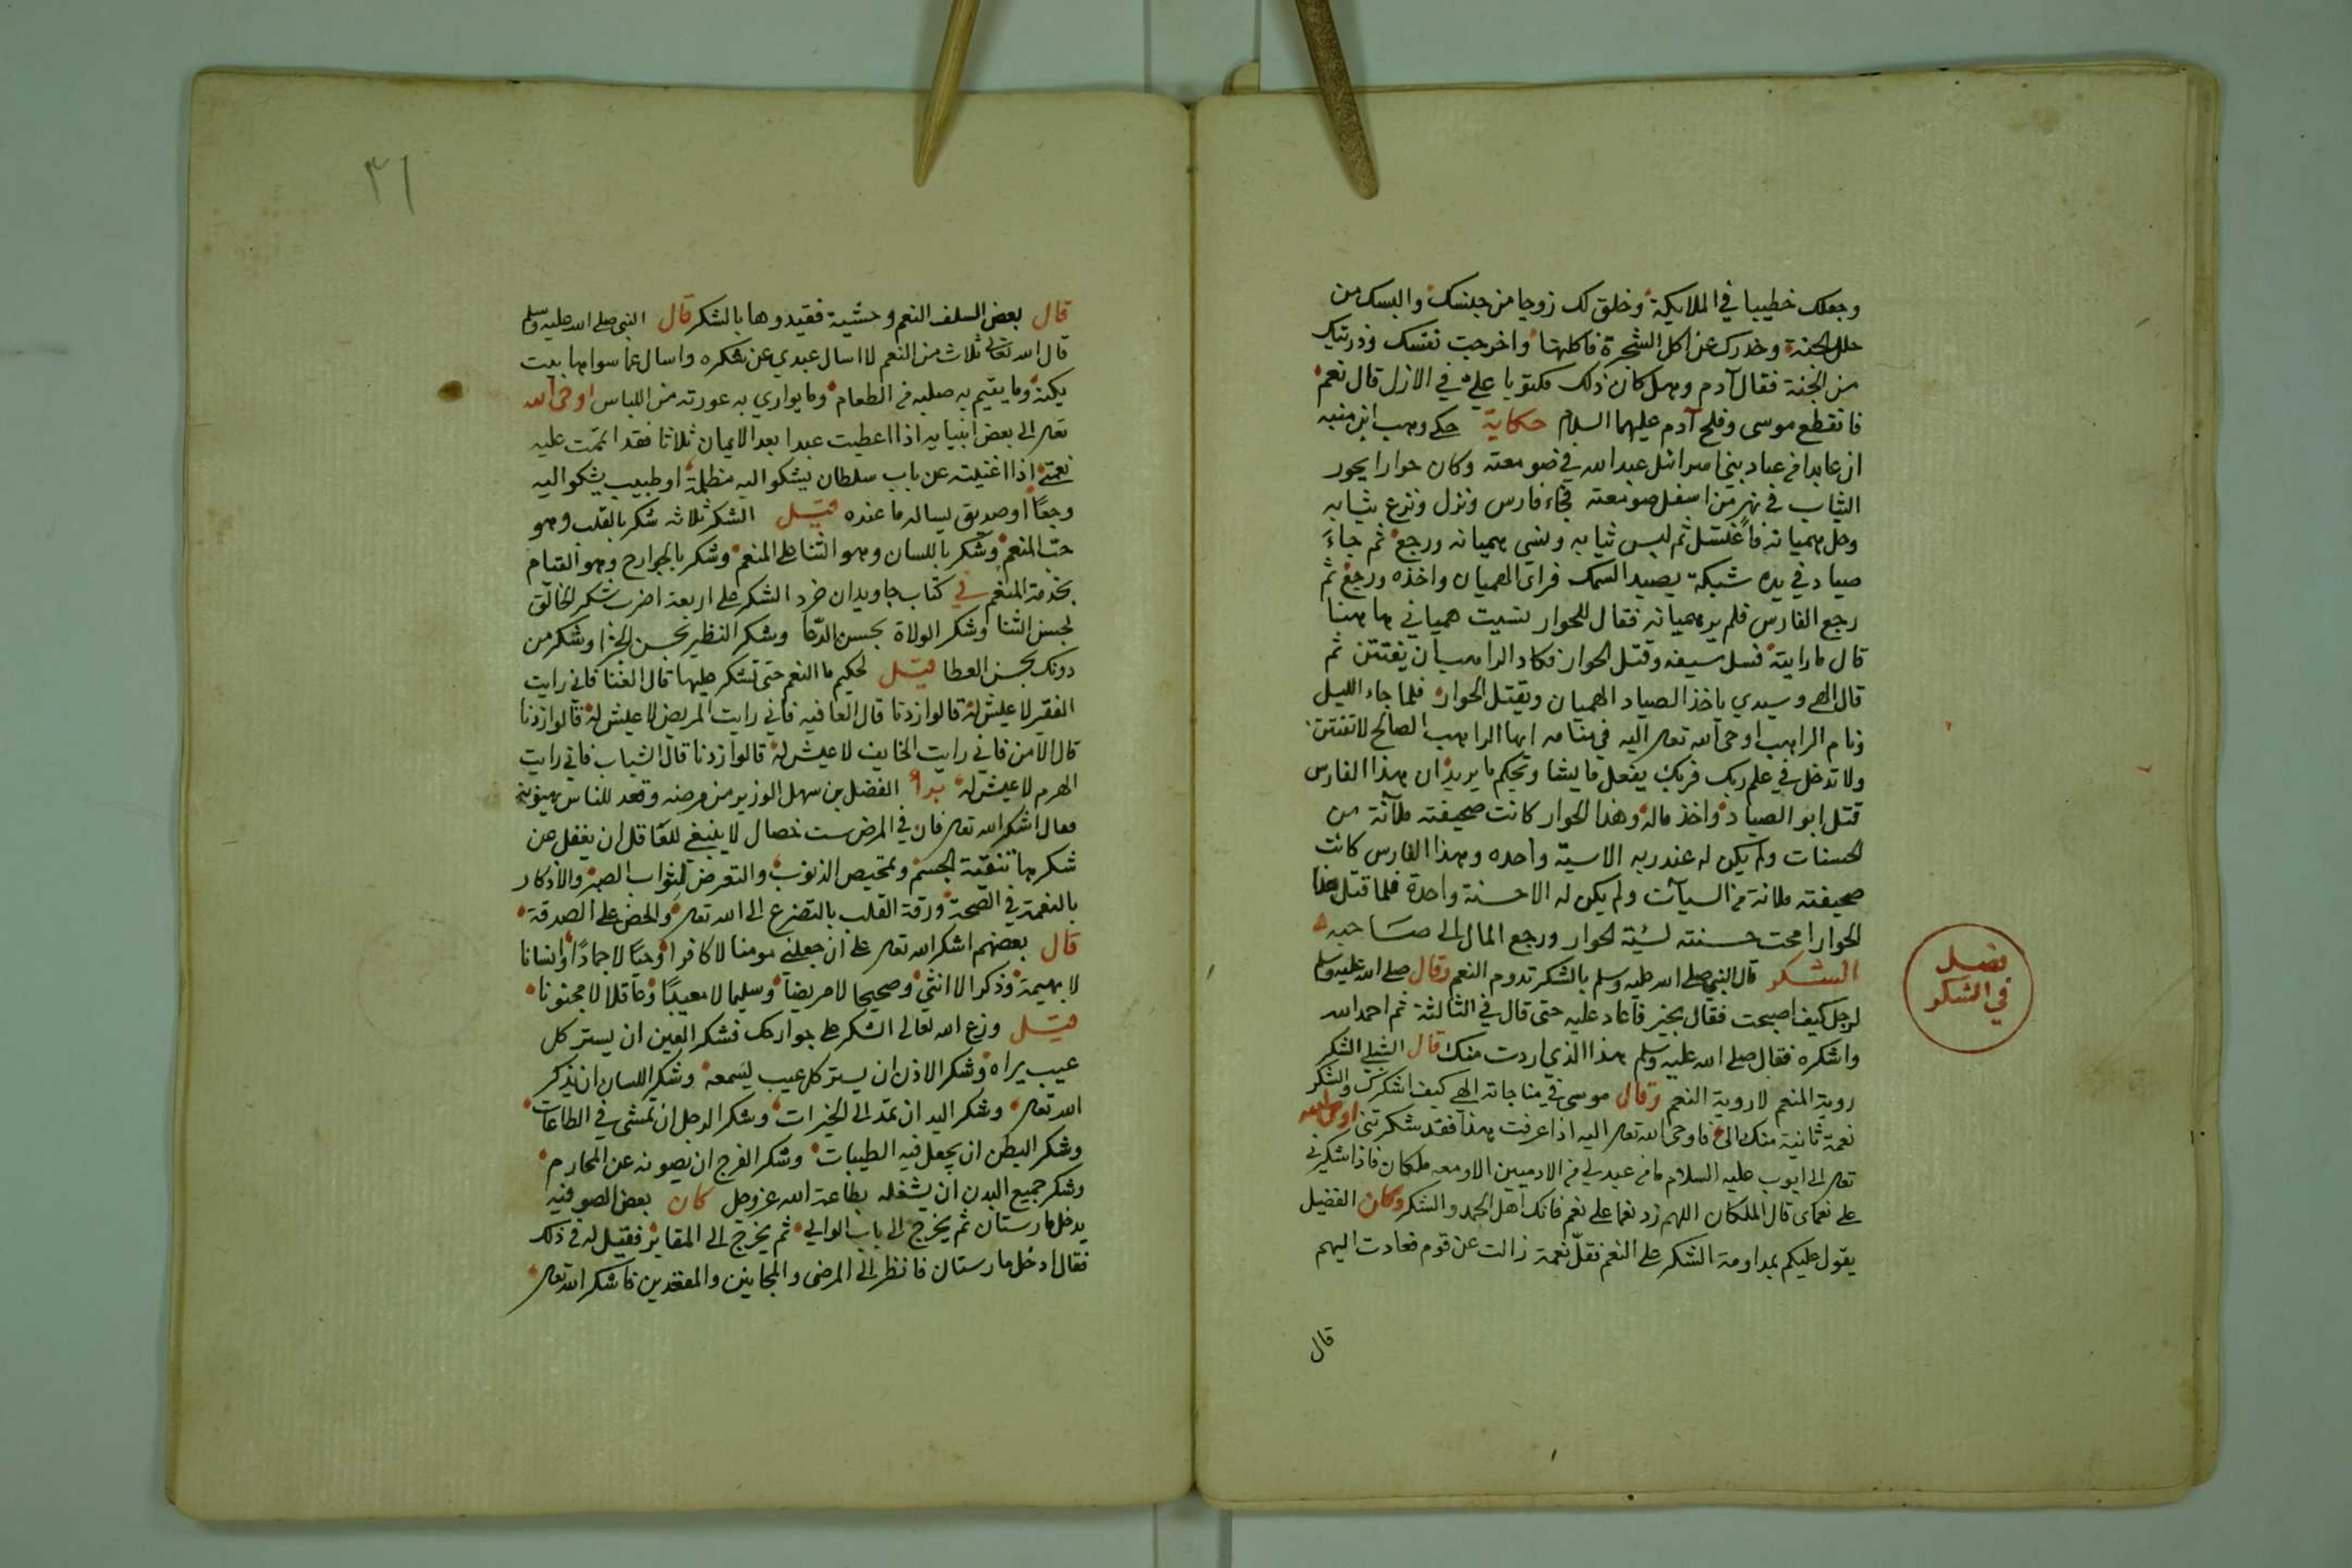 وجعلك خطيبا في الملايكة وخلق لك زوجا من جنسك والبسك من
حلل الجنة وحذرك عن اكل الشجرة فاكلتها واخرجت نفسك وذريتك
من الجنة فقال آدم وهل كان ذلك مكتوبا علي في الازل قال نعم
فانقطع موسى وفلج آدم عليهما السلام حكاية حكى وهب ابن منبه
ان عابدا من عباد بني اسرائل عبد الله في صومعته وكان حوارا يحور
الثياب في نهر من اسفل صومعته فجاء فارس ونزل ونزع ثيابه
وحل هميانه فاغتسل ثم لبس ثيابه ونسي هميانه ورجع ثم جاء
صياد في يده شبكة يصيد السمك فراى الهميان واخذه ورجع ثم
رجع الفارس فلم ير هميانه فقال للحوار نسيت همياني هاهنا
قال ما رايته فسل سيفه وقتل الحوار فكاد الراهب ان يفتتن ثم
قال الهي وسيدي ياخذ الصياد الهميان ويقتل الحوار فلما جاء الليل
ونام الراهب اوحى الله تعالى اليه في منامه ايها الراهب الصالح لا تفتتن
ولا تدخل في علم ربك فربك يفعل ما يشا ويحكم ما يريد ان هذا الفارس
قتل ابو الصياد واخذ ماله وهذا الحوار كانت صحيفته ملآنة من
الحسنات ولم يكن له عند ربه الا سيّة واحده وهذا الفارس كانت
صحيفته ملانة من السيآت ولم يكن له الا حسنة واحدة فلما قتل هذا
الحوار امحت حسنته لسيّة الحوار ورجع المال الى صاحبه
فصل
في الشكر
الشكر قال النبي صلى الله عليه وسلم بالشكر تدوم النعم وقال صلى الله عليه وسلم
لرجل كيف اصبحت فقال بخير فاعاد عليه حتى قال في الثالثة ثم احمد الله
واشكره فقال صلى الله عليه وسلم هذا الذي اردت منك قال الشبلي الشكر
روية المنعم لا روية النعم وقال موسى في مناجاته الهي كيف اشكرك والشكر
نعمة ثانية منك الي فاوحى الله تعالى اليه اذا عرفت هذا فقد شكرتني اوحى الله
تعالى الى ايوب عليه السلام ما من عبد لي من الادميين الا ومعه ملكان فاذا شكرني
على نعماى قال الملكان اللهم زد نعما على نعم فانك اهل الحمد والشكر وكان الفضيل
يقول عليكم بمداومة الشكر على النعم فقلّ نعمة زالت عن قوم فعادت اليهم
قال
٣١
قال بعض السلف النعم وحشية فقيدوها بالشكر قال النبي صلى الله عليه وسلم
قال الله تعالى ثلاث من النعم لا اسال عبدي عن شكره واسال عما سواها بيت
يكنه وما يقيم به صلبه من الطعام وما يواري به عورته من اللباس اوحى الله
تعالى الى بعض انبيايه اذا اعطيت عبدا بعد الايمان ثلاثا فقد اتممت عليه
نعمتي اذا اغنيته عن باب سلطان يشكو اليه مظلمة او طبيب يشكو اليه
وجعًا او صديق يساله ما عنده قيل الشكر ثلاثه شكر بالقلب وهو
حبّ المنعم وشكر باللسان وهو الثنا على المنعم وشكر بالجوارح وهو القيام
بخدمة المنعم في كتاب جاويدان خرد الشكر على اربعة اضرب شكر الخالق
بحسن الثنا وشكر الولاة بحسن الدّعا وشكر النظير بحسن الجزا وشكر من
دونك بحسن العطا قيل لحكيم ما النعم حتى نشكر عليها قال الغنا فاني رايت
الفقير لا عيش له قالوا زدنا قال العافيه فاني رايت المريض لا عيش له قالوا زدنا
قال الامن فاني رايت الخايف لا عيش له قالوا زدنا قال الشباب فاني رايت
الهرم لا عيش له برأ الفضل بن سهل الوزير من مرضه وقعد للناس يهنونه
فقال اشكر الله تعالى فان في المرض ست خصال لا ينبغي للعاقل ان يغفل عن
شكرها تنقية الجسم وتمحيص الذنوب والتعرض لثواب الصبر والاذكار
بالنعمة في الصحة ورقة القلب بالتضرع الى الله تعالى والحض على الصدقة
قال بعضهم اشكر الله تعالى على ان جعلني مومنا لا كافرا وحيّا لا جمادًا وانسانا
لا بهيمة وذكرا لا انثى وصحيحا لا مريضا وسليما لا معيبًا وعاقلا لا مجنونا
قيل وزع الله تعالى الشكر على جوارحك فشكر العين ان يستر كل
عيب يراه وشكر الاذن ان يستر كل عيب يسمعه وشكر اللسان ان يذكر
الله تعالى وشكر اليد ان تمد الى الخيرات وشكر الرجل ان تمشي في الطاعات
وشكر البطن ان يجعل فيه الطيبات وشكر الفرج ان يصونه عن المحارم
وشكر جميع البدن ان يشغله بطاعة الله عز وجل كان بعض الصوفيه
يدخل مارستان ثم يخرج الى باب الوالي ثم يخرج الى المقابر فقيل له في ذلك
فقال ادخل مارستان فانظر الى المرضى والمجانين والمقعدين فاشكر الله تعالى